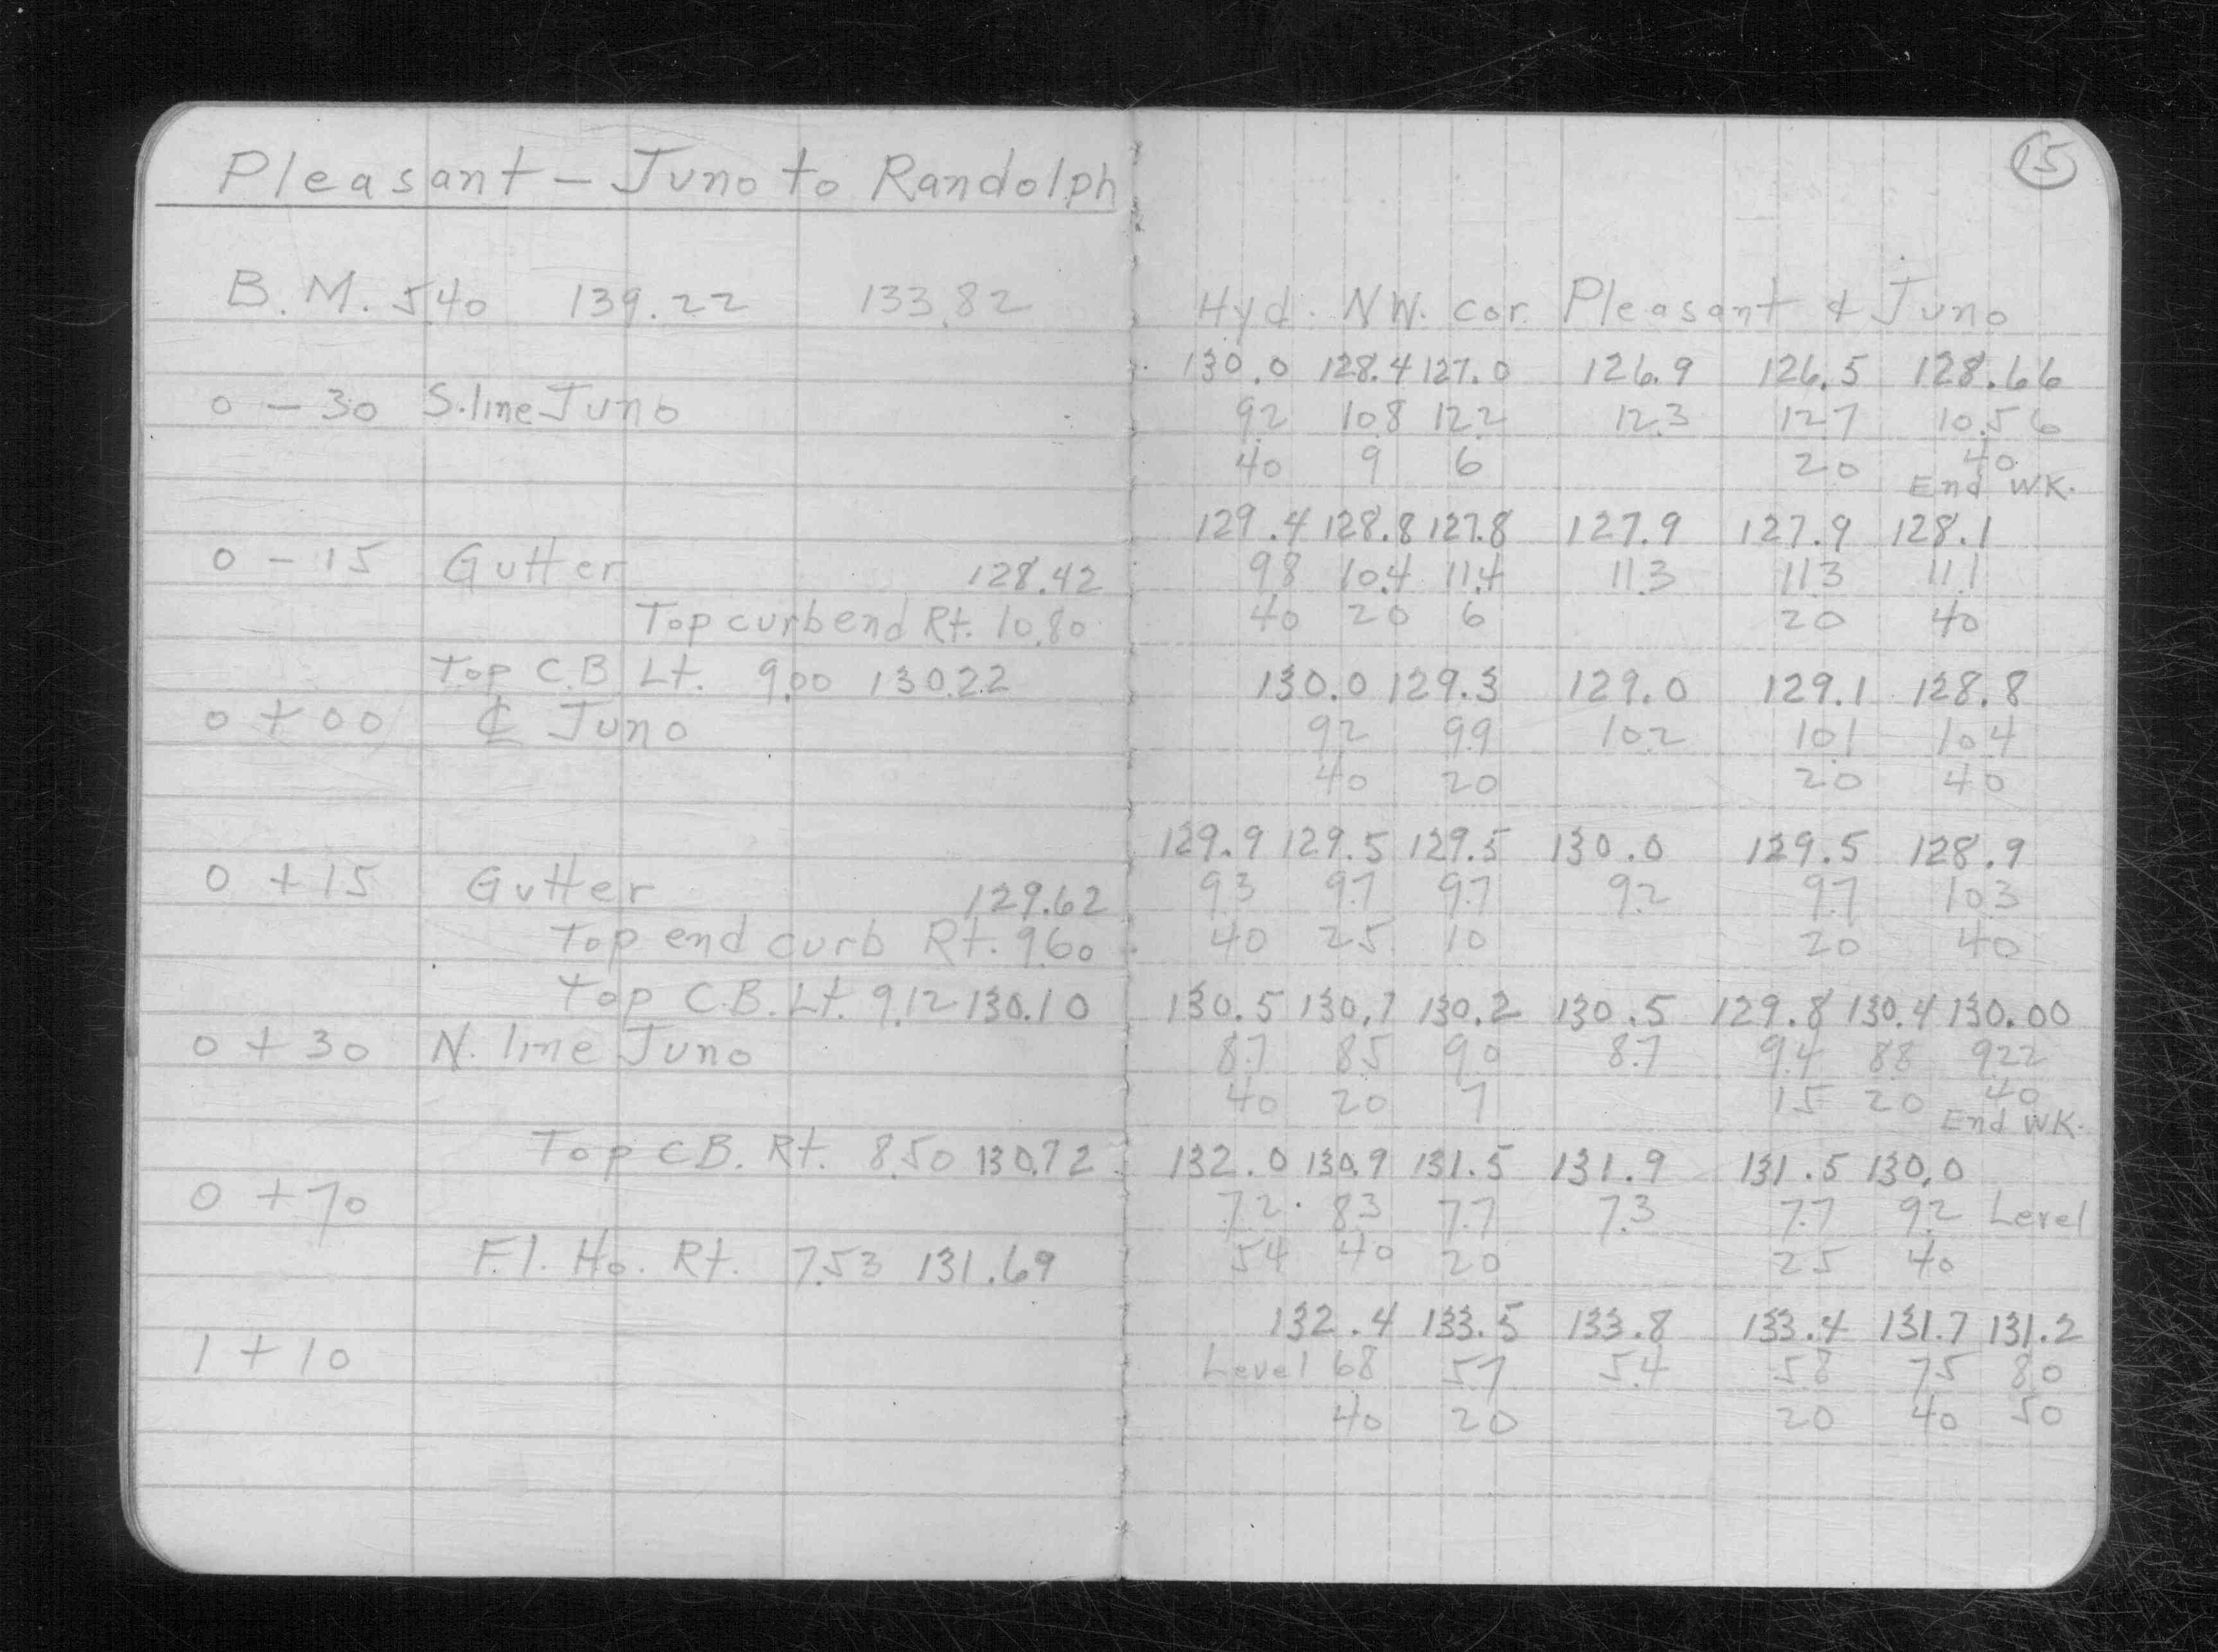 Pleasant - Juno to Randolph
B.M. 5.40 139.22 133.82
0 - 30 S. line Juno
0 - 15 Gutter 128.42
Top curb end Rt. 10.80
Top C.B Lt. 9.00 130.22
0 + 00 ℄ Juno
0 + 15 Gutter 129.62
Top end curb Rt. 9.60
Top C.B. Lt. 9.12 130.10
0 + 30 N. line Juno
Top CB. Rt. 8.50 130.72
0 + 70
F.l. Ho. Rt. 7.53 131.69
1 + 10
15
Hyd. NW. cor. Pleasant & Juno
130.0 128.4 127.0 126.9 126.5 128.66
9.2 10.8 12.2 12.3 12.7 10.56
40 9 6 20 40
End WK.
129.4 128.8 127.8 127.9 127.9 128.1
9.8 10.4 11.4 11.3 11.3 11.1
40 20 6 20 40
130.0 129.3 129.0 129.1 128.8
9.2 9.9 10.2 10.1 10.4
40 20 20 40
129.9 129.5 129.5 130.0 129.5 128.9
9.3 9.7 9.7 9.2 9.7 10.3
40 25 10 20 40
130.5 130.7 130.2 130.5 129.8 130.4 130.00
8.7 8.5 9.0 8.7 9.4 8.8 9.22
40 20 7 15 20 40
End WK.
132.0 130.9 131.5 131.9 131.5 130.0
7.2 8.3 7.7 7.3 7.7 9.2 Level
54 40 20 25 40
132.4 133.5 133.8 133.4 131.7 131.2
Level 6.8 5.7 5.4 5.8 7.5 8.0
40 20 20 40 50